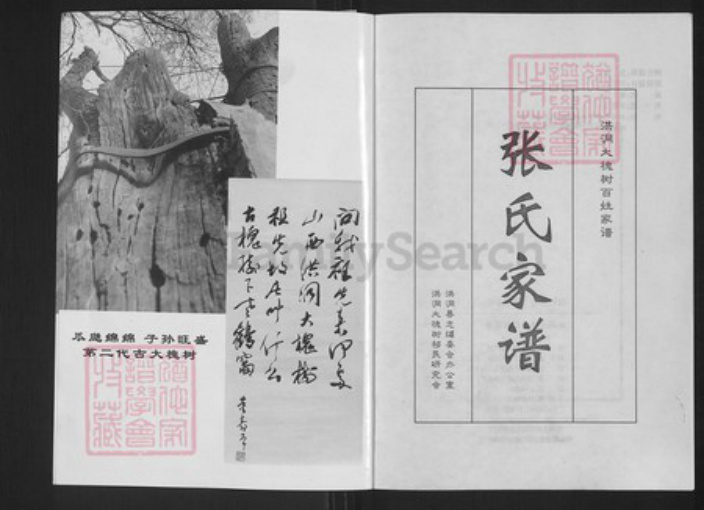 洪洞大槐树百姓家谱
张氏家谱
洪洞县志编委会办公室
洪洞大槐树移民研究会
问我祖先来何处
山西洪洞大槐树
祖先故居叫什么
古槐树下老鹳窝
瓜瓞绵绵 子孙旺盛
第二代古大槐树
FamilySearch